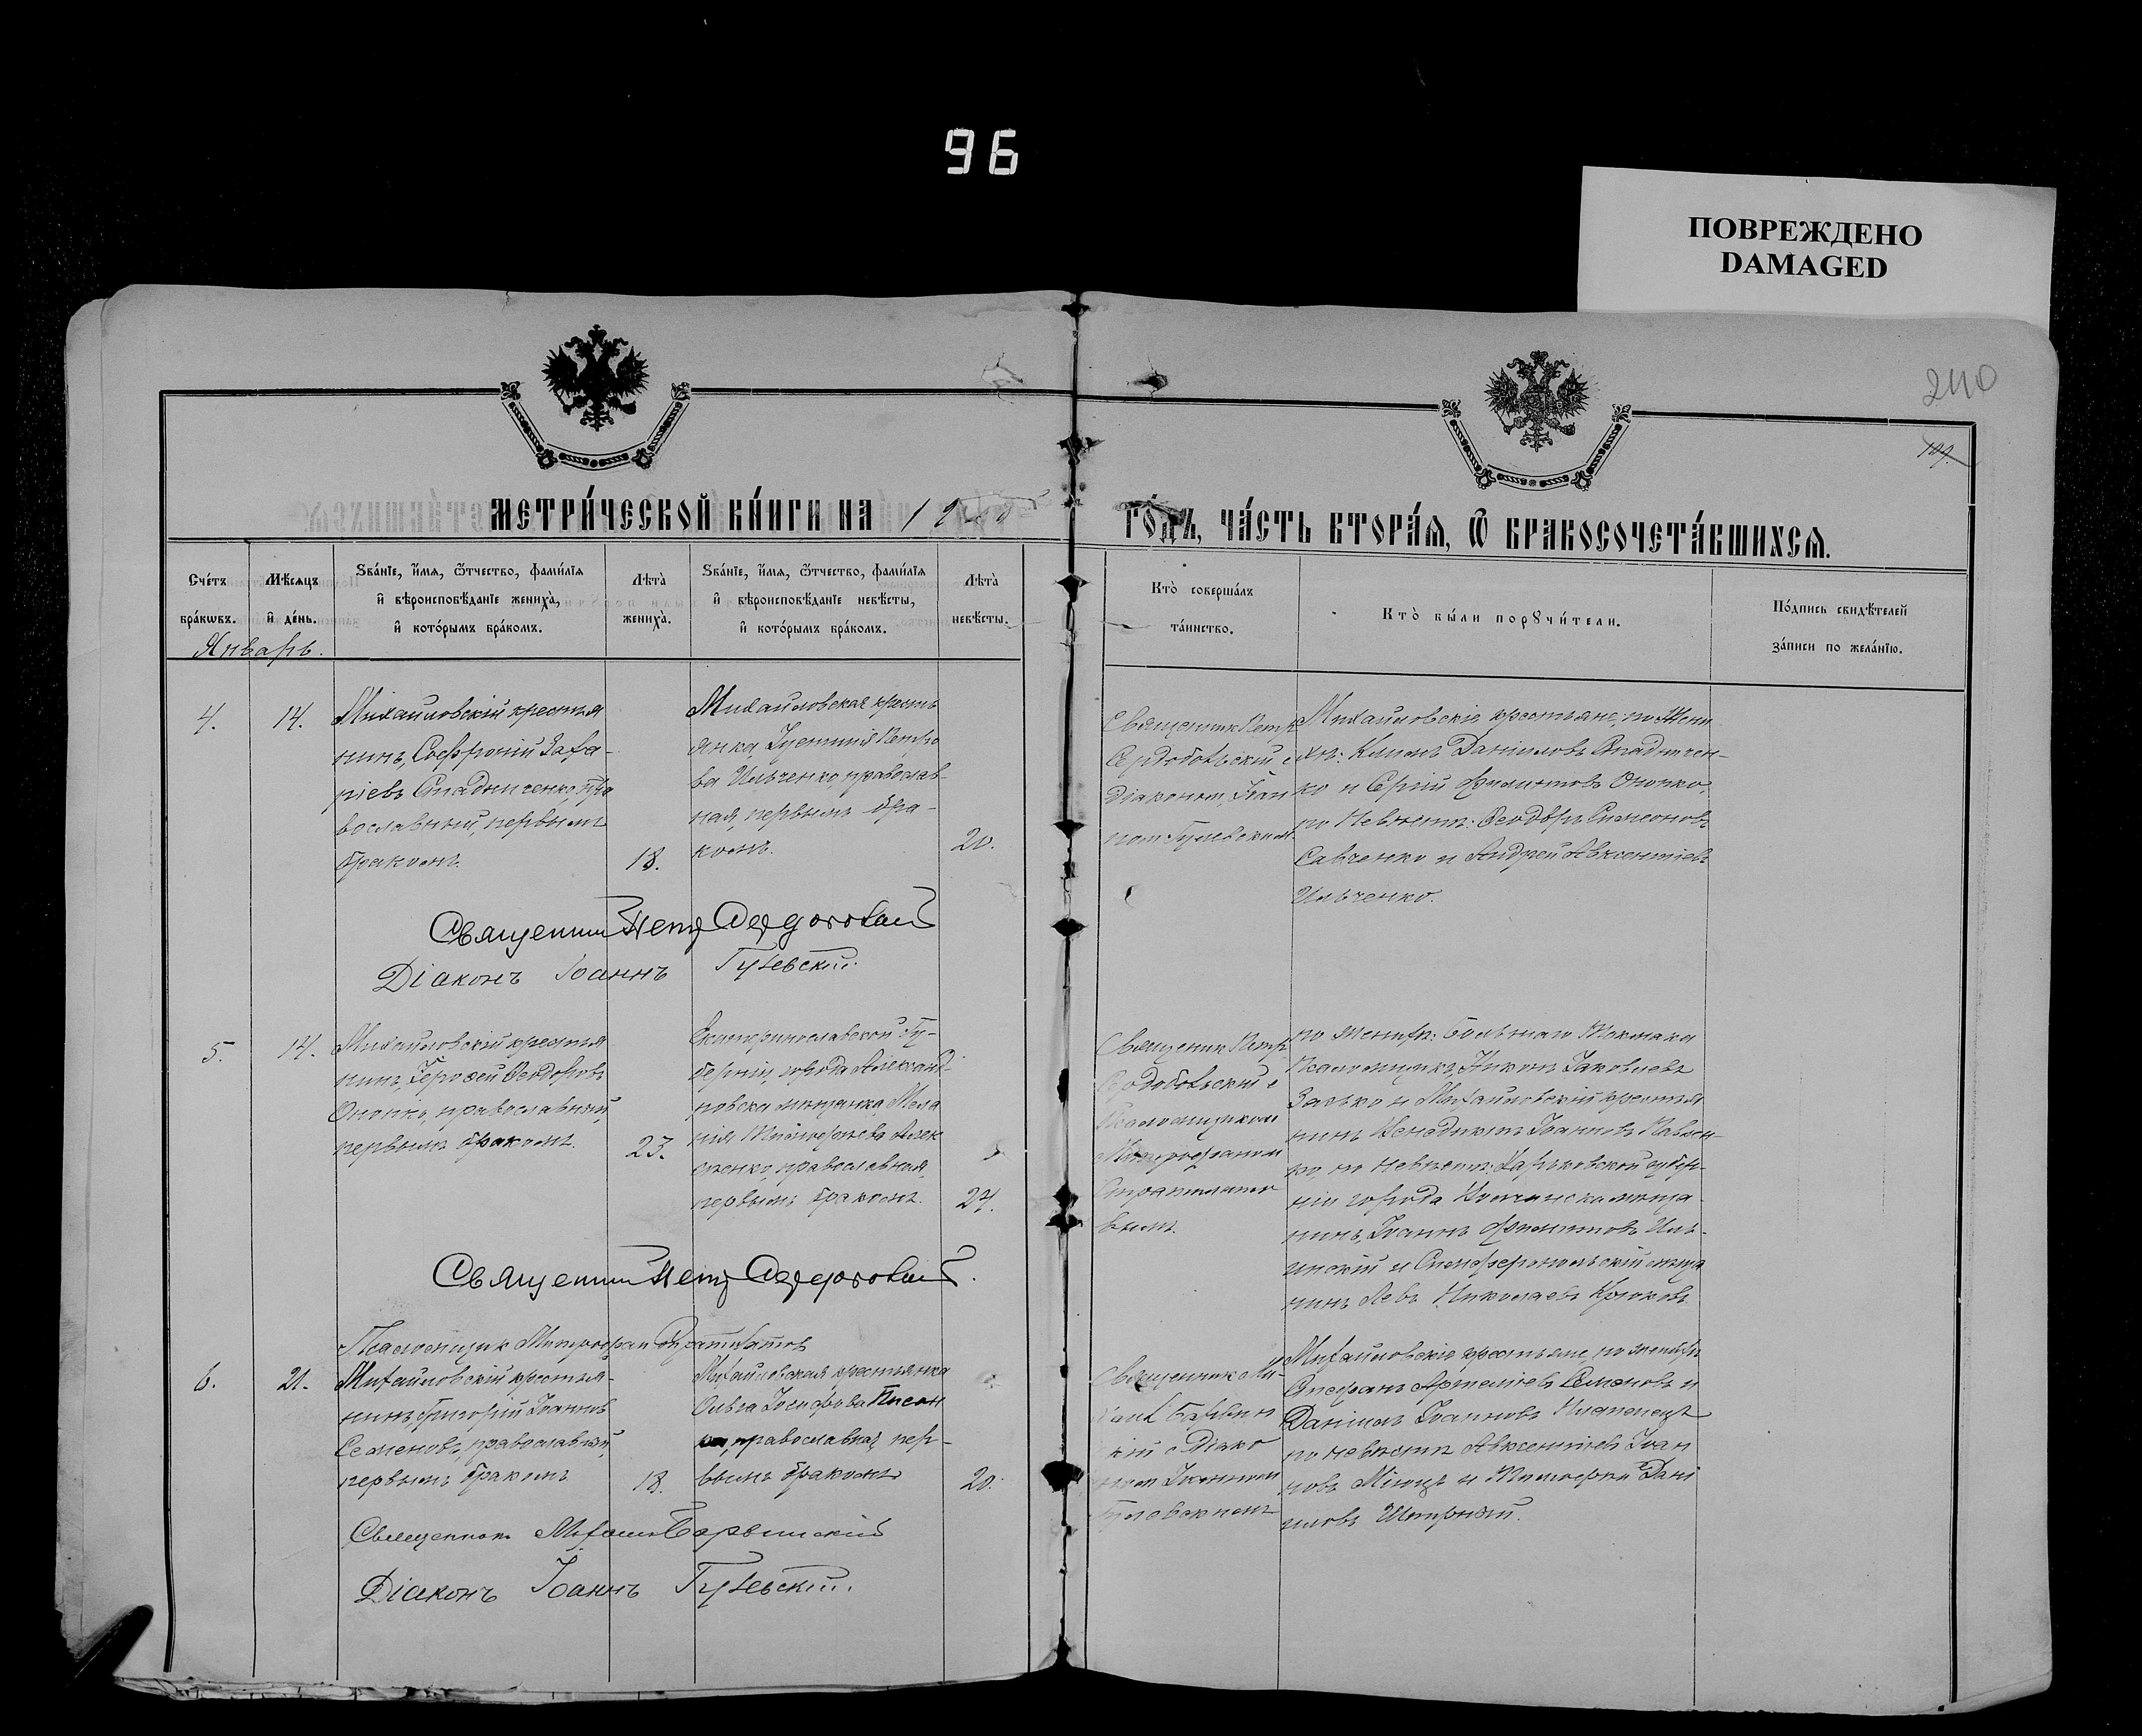 96
ПОВРЕЖДЕНО
DAMAGED
240
МЕТРИ́ЧЕСКОЙ КНИ́ГИ НА
ГО́ДЪ, ЧА́СТЬ ВТОРА́Ѧ, Ѿ БРАКОСОЧЕТА́ВШИХСѦ.
Сче́тъ
бра́кѡвъ.
Мѣ́сѧцъ
и҆ де́нь.
Ѕва́нїе, и҆́мѧ, ѻ҆́тчество, фами́лїѧ
и҆ вѣроисповѣ́данїе жениха̀,
и҆ кото́рымъ бра́комъ.
Лѣ́та̀
жениха̀.
Ѕва́нїе, и҆́мѧ, ѻ҆́тчество, фами́лїѧ
и҆ вѣроисповѣ́данїе невѣ́сты,
и҆ кото́рымъ бра́комъ.
Лѣ́та̀
невѣ́сты.
Кто̀ соверша́лъ
та́инство.
Кто̀ бы́ли порꙋчи́тели.
По́дпись свидѣ́телей
за́писи по жела́нїю.
Январь.
4.
14.
Михайловскій крестья
нинъ, Софроній Заха-
ріевъ Спадниченко, пра
вославный, первымъ
бракомъ.
18.
Михайловская кресть
янка, Іустинія Петро
ва Ильченко, православ-
ная, первымъ бра-
комъ.
20.
Священник Петр
Сердобольскій с
діакономъ Іоан
ном Гулевским
Михайловскіе крестьяне, по Жени
хѣ: Климъ Даніиловъ Спадничен-
ко и Сергій Филиповъ Онопко,
по Невѣстѣ: Ѳеодоръ Симеоновъ
Савченко и Андрей Авксентіевъ
Ильченко.
Священник Петр Сердобольский
Діаконъ Іоаннъ Гулевскій.
5.
14.
Михайловскій крестья
нинъ, Іероѳей Ѳеодоровъ
Онопко, православный,
первымъ бракомъ.
23.
Екатеринославской Гу-
берніи, города Александ-
ровска мѣщанка, Мела
нія Тимоѳеева Алек
сѣенко, православная,
первымъ бракомъ.
24.
Священник Петр
Сердобольскій с
Псаломщиком
Митрофаном
Стратилато
вымъ.
по Женихѣ: Большаго Токмака
Псаломщикъ, Никонъ Іаковлевъ
Залько и Михайловскій крестья
нинъ Венедиктъ Іоанновъ Павлен-
ко, по невѣстѣ: Харьковской губер-
ніи города мѣща
нинъ, Іоаннъ Филиповъ Иль-
инскій и Симферопольскій мѣща
нинъ Левъ Николаевъ Крюковъ
Священник Петр Сердобольский.
Псаломщик Митрофан Стратилатов
6.
21.
Михайловскій крестья-
нинъ, Григорій Іоанновъ
Семеновъ, православный,
первымъ бракомъ
18.
Михайловская крестьянка
Ольга Іосифова Писан
ка, православная, пер-
вымъ бракомъ
20.
Священник Ми-
хаил Барвин
скій с Діако
ном Іоанном
Гулевскимъ
Михайловскіе крестьяне, по женихѣ
Стефанъ Артеміевъ Семеновъ и
Даніилъ Іоанновъ
по невѣстѣ Авксентій Іоан
новъ и Тимоѳей Дані
иловъ
Священникъ Михаилъ Барвинскій
Діаконъ Іоаннъ Гулевскій.